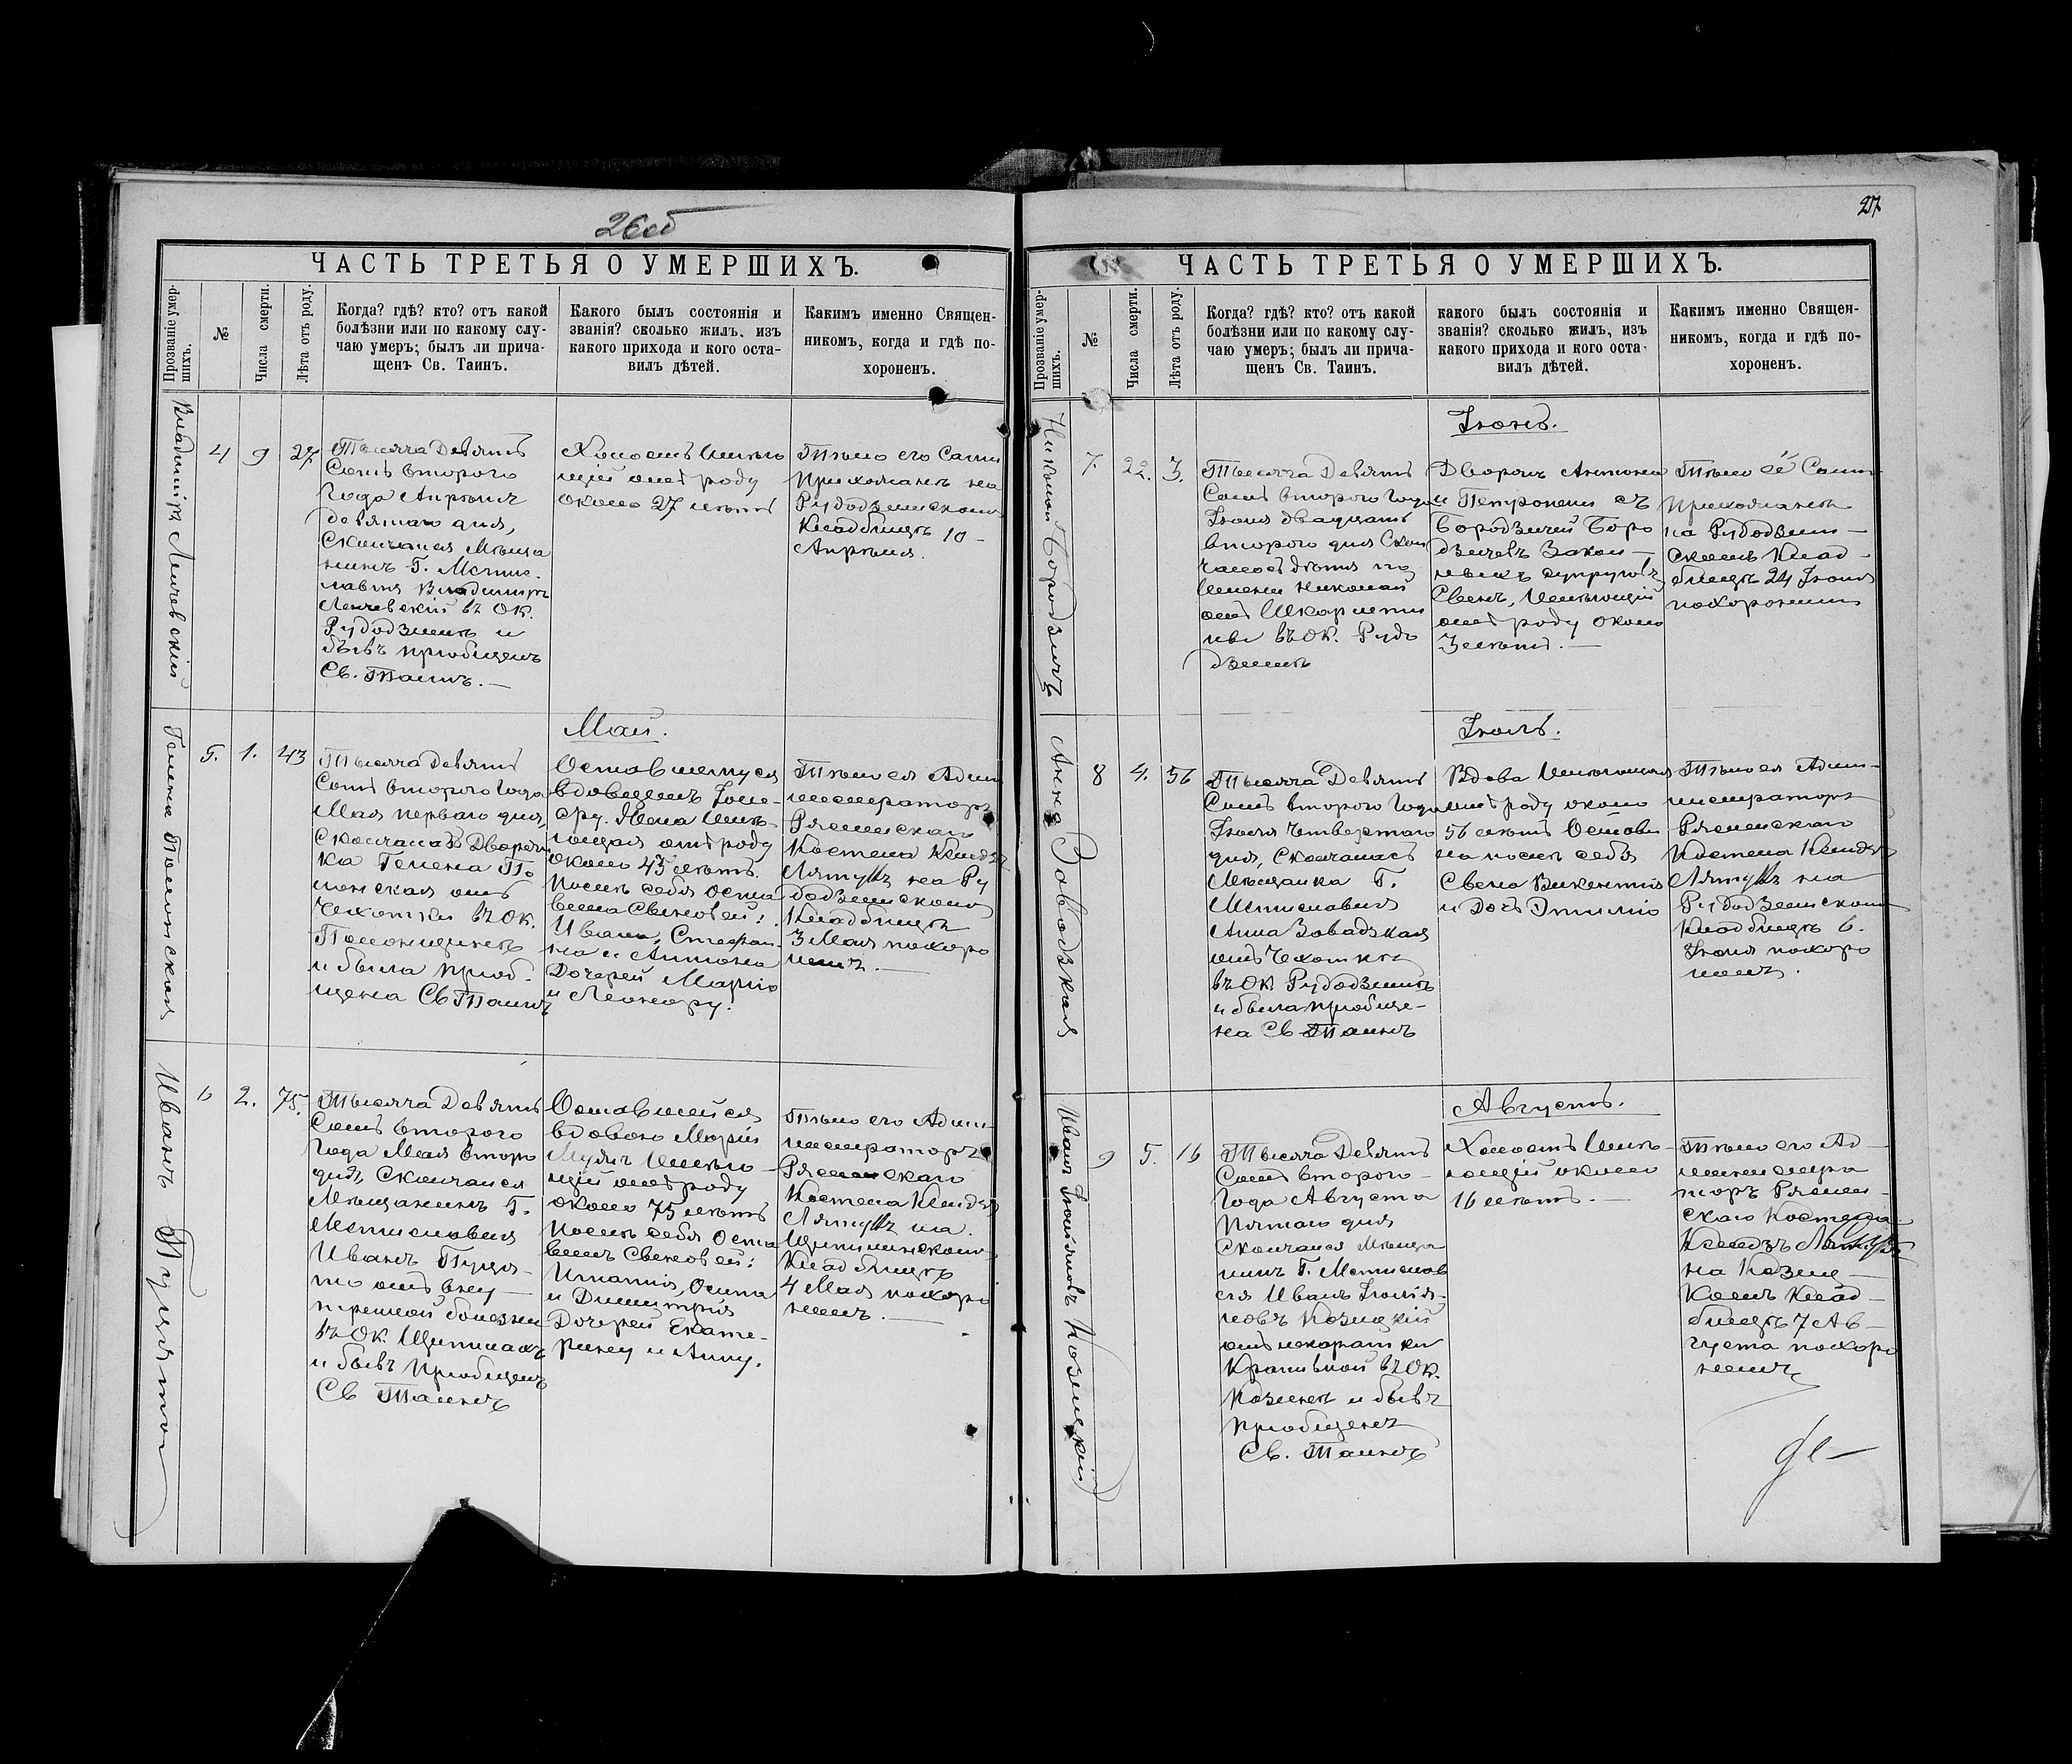 26об
ЧАСТЬ ТРЕТЬЯ О УМЕРШИХЪ.
Прозваніе умер-
шихъ.
№
Числа смерти.
Лѣта отъ роду.
Когда? гдѣ? кто? отъ какой
болѣзни или по какому слу-
чаю умеръ; былъ ли прича-
щенъ Св. Таинъ.
Какого былъ состоянія и
званія? сколько жилъ, изъ
какого прихода и кого оста-
вилъ дѣтей.
Какимъ именно Священ-
никомъ, когда и гдѣ по-
хороненъ.
Владиміръ Ленчевскій
4
9
27
Тысяча Девятъ
Сотъ второго
Года Апрѣля
девятаго дня,
Скончался Мѣща
нинъ Г. Мстис-
лавля Владиміръ
Ленчевскій въ ОК.
Рудодзинѣ и
бывъ пріобщенъ
Св. Таинъ.—
Холостъ Имѣю
щій отъ роду
около 27 лѣтъ
Тѣло его Сами
Прихожанѣ на
Рудодзинскомъ
Кладбищѣ 10 -
Апрѣля.
Май.
Гелена Полонская
5.
1.
43
Тысяча Девятъ
Сотъ второго Года
Мая перваго дня,
Скончалась Дворян
ка Гелена По
лонская отъ
Чахотки въ ОК.
Полонщинѣ
и была пріоб-
щена Св Таинъ
Оставшемуся
вдовцемъ
Имѣ
ющая отъ роду
около 43 лѣтъ.
Послѣ себя Оста
вила Сыновей:
Ивана, Стефа
на и Антона
Дочерей Марію
и Леонору.
Тѣло ея Адми
нистраторъ
Рясенскаго
Костела Ксендзъ
на Ру
додзинскомъ
Кладбищѣ
3 Мая похоро
нилъ.—
Иванъ Пуцято
6
2.
75.
Тысяча Девятъ
Сотъ второго
Года Мая второ
дня, Скончался
Мѣщанинъ Г.
Мстиславля
Иванъ Пуця-
то отъ вну-
тренной болезни
въ ОК. Щитникахъ
и бывъ Пріобщенъ
Св Таинъ
Оставшейся
вдовою Маріи
Имѣю-
щій отъ роду
около 75 лѣтъ
Послѣ себя Оста
вилъ Сыновей:
Игнатія, Осипа
и Димитрія
Дочерей Екате-
рину и Анну.
Тѣло его Адми-
нистраторъ
Рясенскаго
Костела Ксендзъ
на
Кладбищѣ
4 Мая похоро
нилъ.—
27
ЧАСТЬ ТРЕТЬЯ О УМЕРШИХЪ.
Прозваніе умер-
шихъ.
№
Числа смерти.
Лѣта отъ роду.
Когда? гдѣ? кто? отъ какой
болѣзни или по какому слу-
чаю умеръ; былъ ли прича-
щенъ Св. Таинъ.
какого былъ состоянія и
званія? сколько жилъ, изъ
какого прихода и кого оста-
вилъ дѣтей.
Какимъ именно Священ-
никомъ, когда и гдѣ по-
хороненъ.
Іюнь.
Николай Бородзичъ
7.
22.
3.
Тысяча Девятъ
Сотъ второго Года
Іюня двадцать
второго дня Скон
чалось дѣтя по
Имени Николай
отъ Шкарлети
ны въ ОК. Рудо
дзинѣ
Дворянъ Антона
и Петронели съ
Бородзичей Боро
дзичевъ Закон-
ныхъ супруговъ
Сынъ, Имѣющій
отъ роду около
3 лѣтъ.—
Тѣло её Сами-
Прихожанѣ
на Рудодзин-
скомъ Клад-
бищѣ 24 Іюня
похоронили
Іюль.
Анна Завадзкая
8
4.
56
Тысяча Девятъ
Сотъ второго Года
Іюля четвертаго
дня, Скончалась
Мѣщанка Г.
Мстиславля
Анна Завадзкая
отъ Чахотки
въ ОК. Рудодзинѣ
и была пріобще-
на Св Таинъ
Вдова Имѣющая
отъ роду около
56 лѣтъ Остави
ла послѣ себя
Сына Викентія
и Дочь Эмилію
Тѣло ея Адми-
нистраторъ
Рясенскаго
Костела Ксендзъ
на
Рудодзинскомъ
Кладбищѣ 6.
Іюля похоро
нилъ.
Августъ.
Иванъ Іюліяновъ Козицкій
9
5.
16
Тысяча Девятъ
Сотъ второго-
Года Августа
Пятаго дня
Скончался Мѣща
нинъ Г. Мстислав
ля Иванъ Іюлія-
новъ Козицкій
отъ лихорадки
въ ОК.
и бывъ
Пріобщенъ
Св. Таинъ
Холостъ Имѣ-
ющій около
16 лѣтъ.—
Тѣло его Ад-
министра
торъ Рясен-
скаго Костела
Ксендзъ
на Козиц-
комъ Клад-
бищѣ 7 Ав-
густа похоро
нилъ